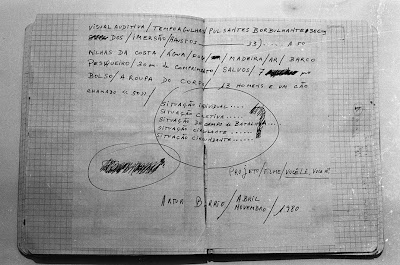 VISUAL AUDITIVA / TEMPO GULHAM / PULSANTES BORBULHANTES
DOS / IMERSÃO / HAUSTOS 33) .... A 70
MILHAS DA COSTA / ÁGUA / MADEIRA / AR / BARCO
PESQUEIRO / 30 m. DE COMPRIMENTO / SALVOS / 7 NO
BOLSO / A ROUPA DO CORPO / 13 HOMENS E UM CÃO
CHAMADO
SITUAÇÃO INDIVIDUAL ....
SITUAÇÃO COLETIVA .....
SITUAÇÃO DE CAMPO DE BATALHA ...
SITUAÇÃO CIRCULANTE ......
SITUAÇÃO CIRCUNDANTE .....
PROJETO / FILME / VOCÊ É, VOCÊ
ARTUR BARRIO / ABRIL
NOVEMBRO / 1980